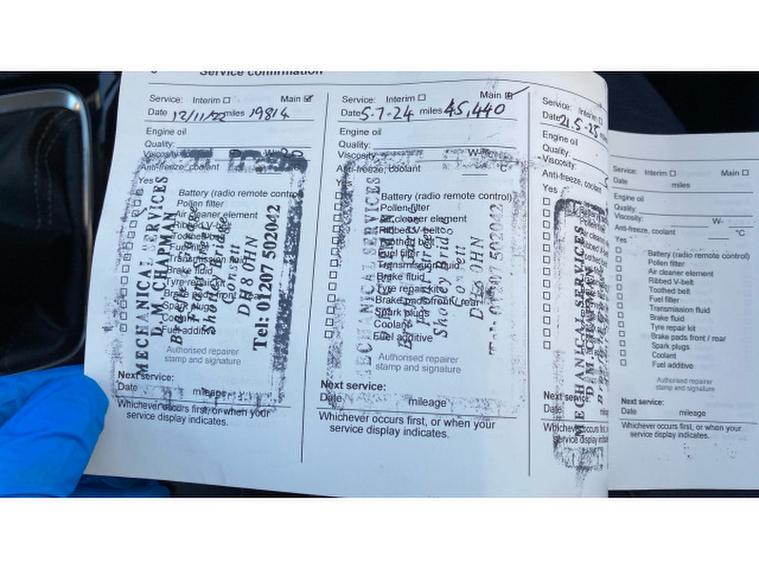 Service confirmation
Service: Interim Main
Date 12/11/22 miles 19814
Engine oil
Quality:
Viscosity: W-
Anti-freeze, coolant
Yes
Battery (radio remote control)
Pollen filter
Air cleaner element
Ribbed V-belt
Toothed belt
Fuel filter
Transmission fluid
Brake fluid
Tyre repair kit
Brake pads front
Spark plugs
Coolant
Fuel additive
Authorised repairer
stamp and signature
MECHANICAL SERVICES
D.M. CHAPMAN
Shotley Bridge
Consett
DH8 0HN
Tel: 01207 502042
Next service:
Date mileage
Whichever occurs first, or when your
service display indicates.
Service: Interim Main
Date 5-7-24 miles 45,440
Engine oil
Quality:
Viscosity: W-
Anti-freeze, coolant °C
Yes
Battery (radio remote control)
Pollen filter
Air cleaner element
Ribbed V-belt
Toothed belt
Fuel filter
Transmission fluid
Brake fluid
Tyre repair kit
Brake pads front / rear
Spark plugs
Coolant
Fuel additive
Authorised repairer
stamp and signature
MECHANICAL SERVICES
Shotley Bridge
Consett
DH8 0HN
Tel: 01207 502042
Next service:
Date mileage
Whichever occurs first, or when your
service display indicates.
Service: Interim
Date 21.5-25
Engine oil
Quality:
Viscosity:
Anti-freeze, coolant
Yes
MECHANICAL SERVICES
Next service:
Date
Whichever occurs
service display indic
Service: Interim Main
Date miles
Engine oil
Quality:
Viscosity: W-
Anti-freeze, coolant °C
Yes
Battery (radio remote control)
Pollen filter
Air cleaner element
Ribbed V-belt
Toothed belt
Fuel filter
Transmission fluid
Brake fluid
Tyre repair kit
Brake pads front / rear
Spark plugs
Coolant
Fuel additive
Authorised repairer
stamp and signature
Next service:
Date mileage
Whichever occurs first, or when your
service display indicates.